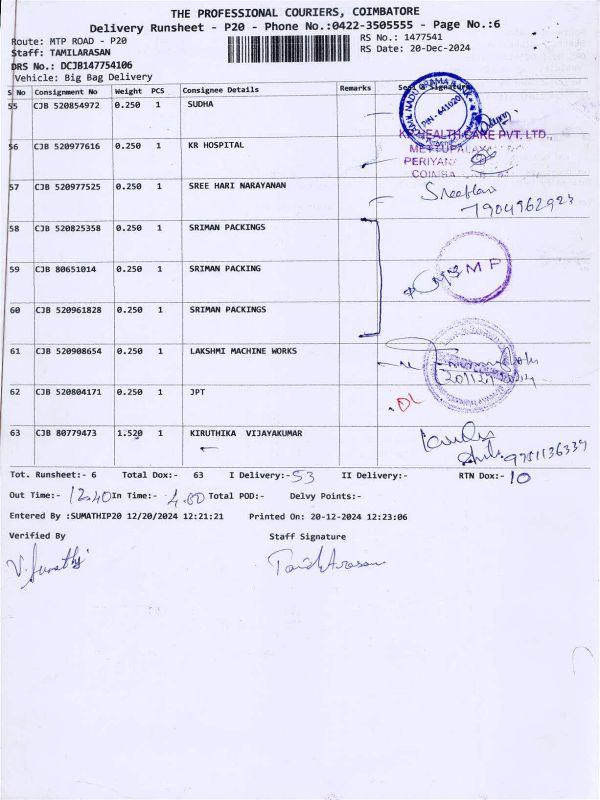 THE PROFESSIONAL COURIERS, COIMBATORE
Delivery Runsheet - P20 - Phone No.:0422-3505555 - Page No.:6
Route: MTP ROAD - P20
RS No.: 1477541
Staff: TAMILARASAN
RS Date: 20-Dec-2024
DRS No.: DCJB147754106
Vehicle: Big Bag Delivery
S No Consignment No Weight PCS Consignee Details Remarks Seal & Signature
55 CJB 520854972 0.250 1 SUDHA
PIN - 641020
56 CJB 520977616 0.250 1 KR HOSPITAL
HEALTH CARE PVT. LTD.,
57 CJB 520977525 0.250 1 SREE HARI NARAYANAN
Sreehari
7904962923
58 CJB 520825358 0.250 1 SRIMAN PACKINGS
59 CJB 80651014 0.250 1 SRIMAN PACKING
M P
60 CJB 520961828 0.250 1 SRIMAN PACKINGS
61 CJB 520908654 0.250 1 LAKSHMI MACHINE WORKS
62 CJB 520804171 0.250 1 JPT
DL
63 CJB 80779473 1.520 1 KIRUTHIKA VIJAYAKUMAR
Tot. Runsheet:- 6 Total Dox:- 63 I Delivery:- 53 II Delivery:- RTN Dox:- 10
Out Time:- 12.40 In Time:- 4.00 Total POD:- Delvy Points:-
Entered By :SUMATHIP20 12/20/2024 12:21:21 Printed On: 20-12-2024 12:23:06
Verified By Staff Signature
V. Sumathi